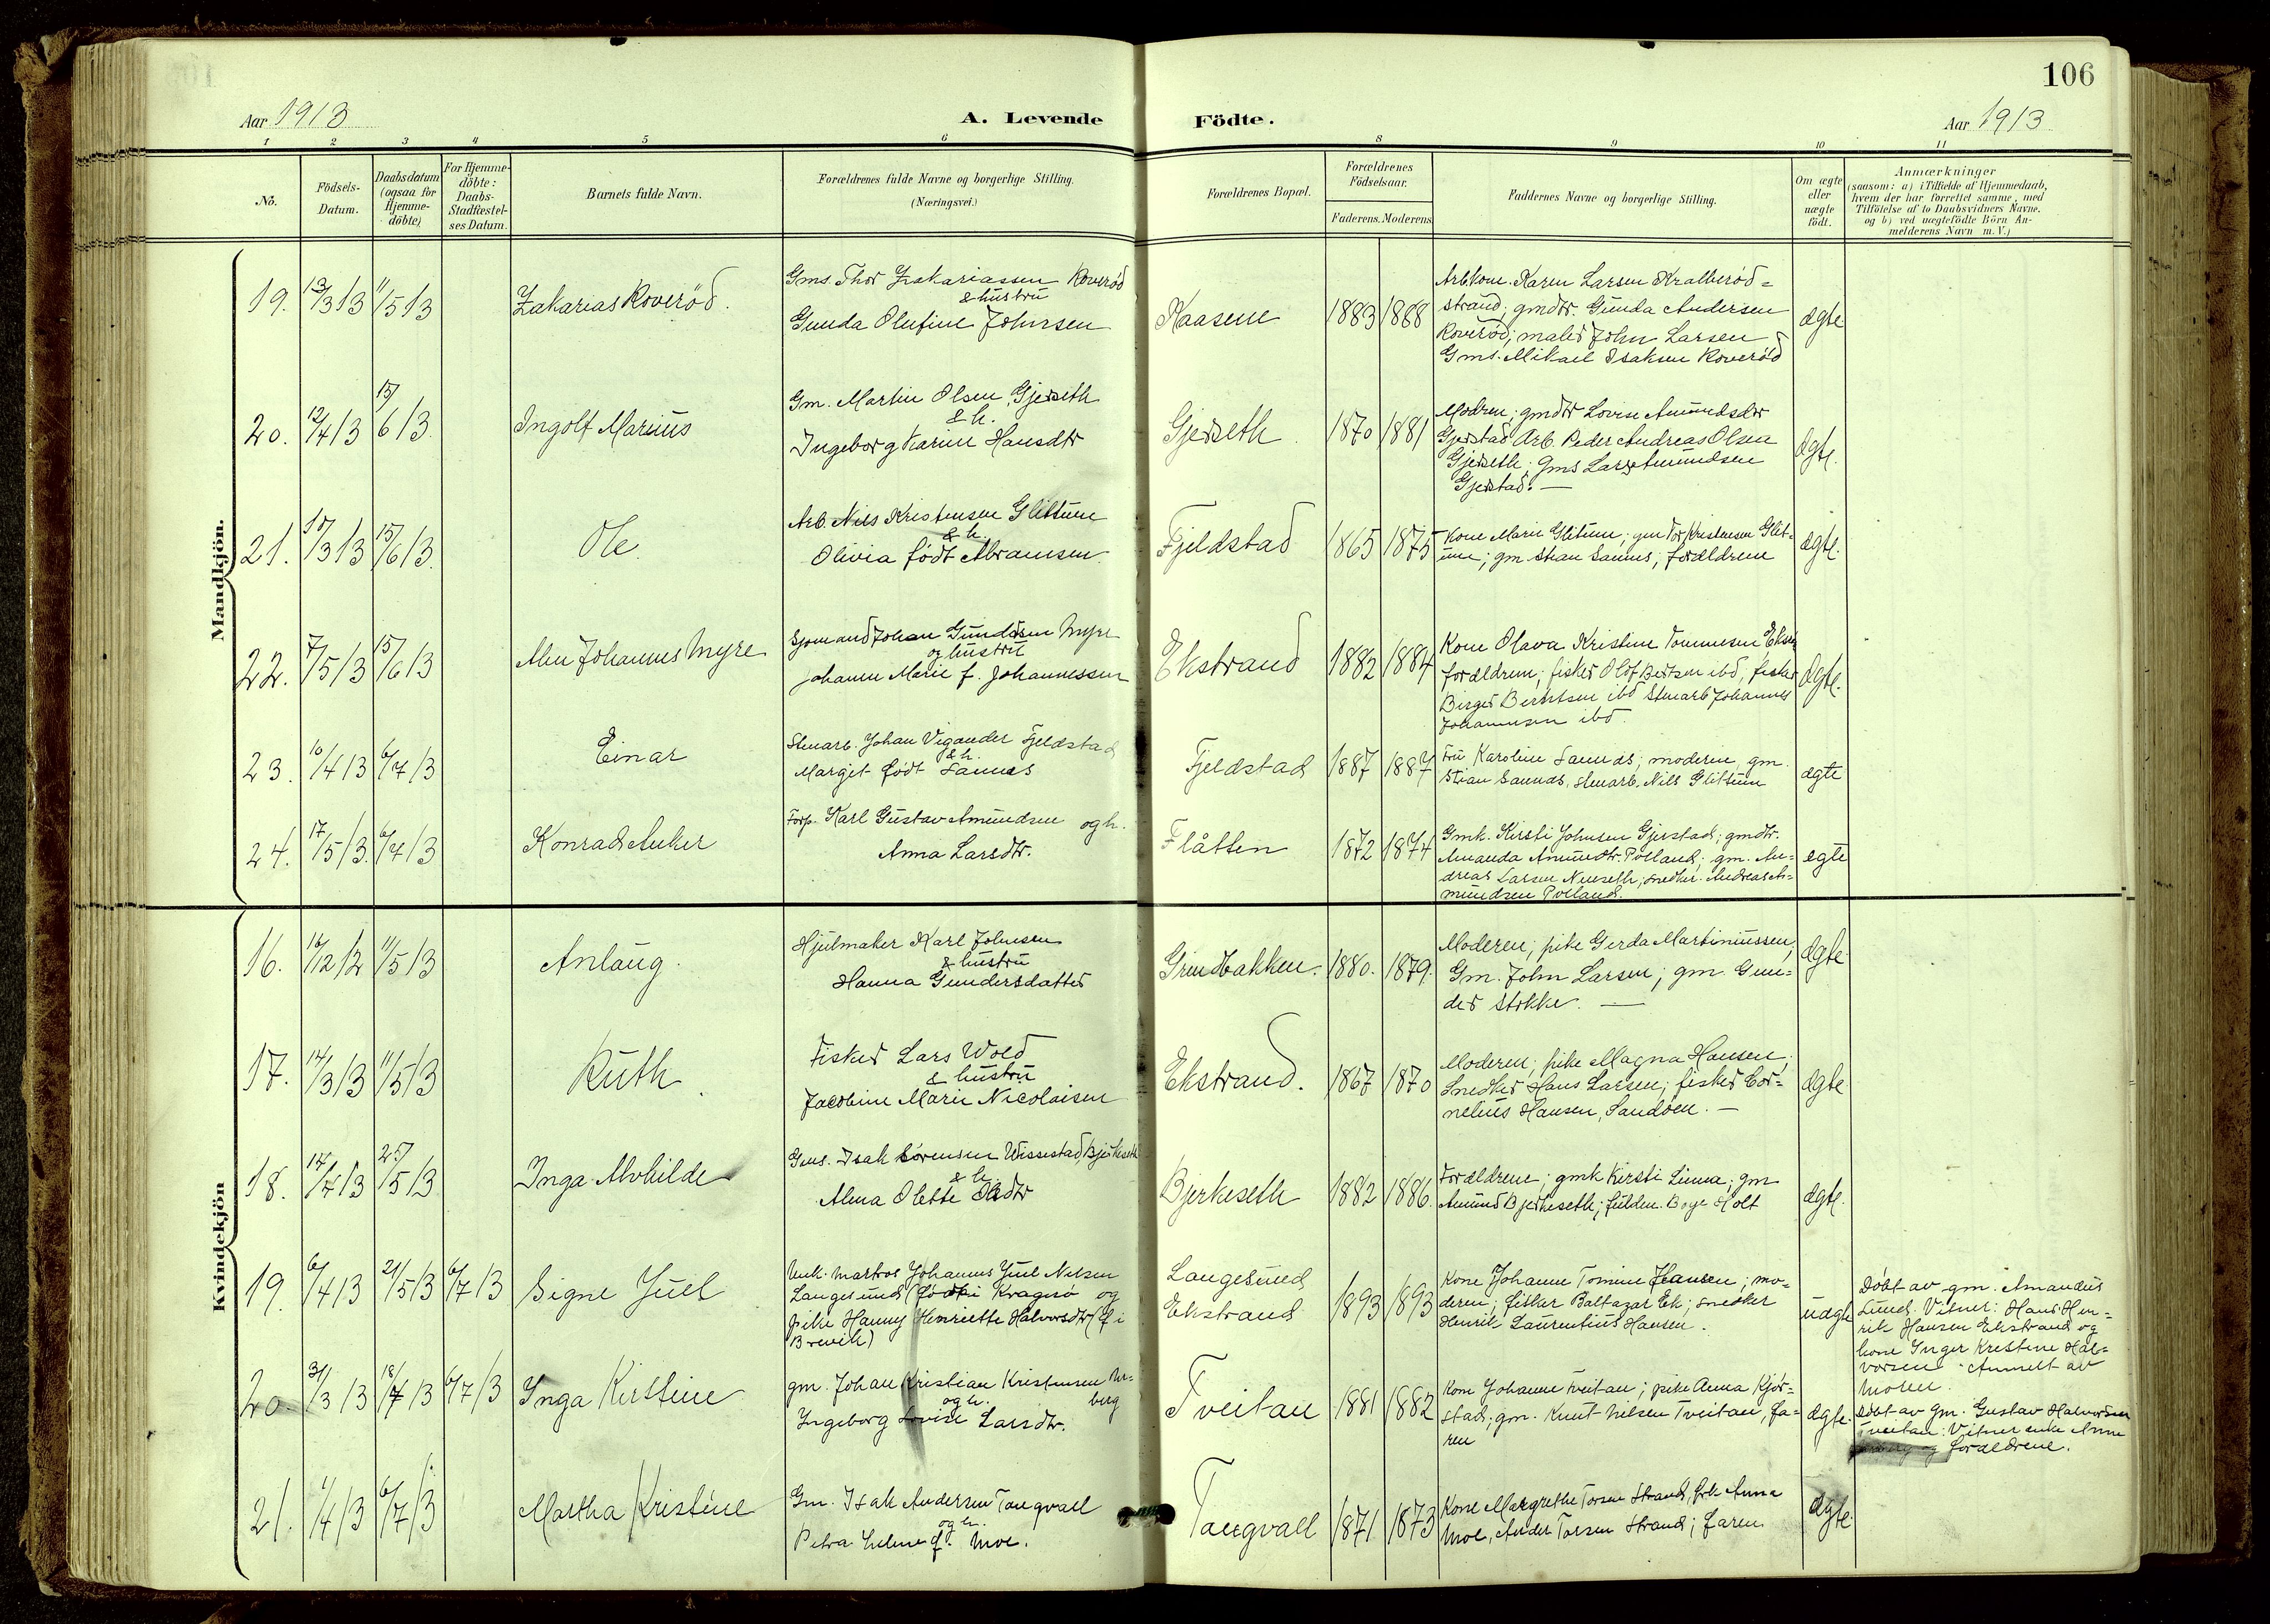 106
Aar 1913
A. Levende
Födte.
Aar 1913
1 2 3 4 5 6 8 9 10 11
No.
Födsels-
Datum.
Daabsdatum
(ogsaa for
Hjemme-
döbte)
For Hjemme-
döbte:
Daabs-
Stadfæstel-
ses Datum.
Barnets fulde Navn.
Forældrenes fulde Navne og borgerlige Stilling.
(Næringsvei.)
Forældrenes Bopæl.
Forældrenes
Födselsaar.
Faderens. Moderens
Faddernes Navne og borgerlige Stilling.
Om ægte
eller
uægte
födt.
Anmærkninger
(saasom: a) i Tilfælde af Hjemmedaab,
hvem der har forrettet samme, med
Tilföielse af to Daabsvidners Navne.
og b) ved uægtefödte Börn An-
melderens Navn m. V.)
Mandkjön.
19. 13/3 13 11/5 13
Zakarias Roverød.
Gms. Thor Zakariassen Roverød
& hustru
Gunda Olufine Johnsen
Kaasene
1883 1888
Arb.kone. Karen Larsen Kralberød-
strand; gmdtr. Gunda Andersen
Roverød; maler John Larsen
Gms. Mikael Isaksen Roverød
ægte
20. 12/4 13 15/6 13.
Ingolf Marius
Gm. Martin Olsen, Gjerseth
& h.
Ingeborg Karine Hansdtr
Gjerseth
1870 1881
Modren; gmdtr Lovise Amundsdtr
Gjerstad Arb. Peder Andreas Olsen
Gjerseth; Gms Lars Amundsen
Gjerstad. —
Ægte.
21. 10/3 13 15/6 13.
Ole.
Arb. Nils Kristensen Glittum
& h.
Olivia født Abramsen.
Fjeldstad
1865 1875
Kone Marie Glitum; gm Tor Kristensen Glit-
um; gm Stian Sannes; forældrene
ægte.
22. 7/5 13 15/6 13
Alm Johannes Myre
Sjømand Johan Gundersen Myre
og hustru
Johanne Marie f. Johannessen
Ekstrand
1882 1884
Kone Olava Kristine Tommesen, Ekstr.
forældrene; fisker Olof Bertsen ibd, fisker
Birger Berntsen ibd Stenarb Johannes
Johannesen ibd.
Ægte.
23. 10/4 13 6/7 13
Einar
Stenarb. Johan Vigander Fjeldstad
& h.
Margit født Sannes
Fjeldstad
1887 1887
Fru Karoline Sannes; moderen, gm.
Stian Sannes, stenarb. Nils Glittum
ægte
24. 17/5 13. 6/7 13
Konrad Anker
Forp. Karl Gustav Amundsen og h.
Anna Larsdtr.
Flåtten
1872 1874
Gmk. Kirsti Johnsen Gjerstad; gmdtr.
Amanda Amundtr. Polland; gm. An-
dreas Larsen Neuseth, snedker. Andreas A-
mundsen Polland.
ægte
Kvindekjön
16. 16/12 12 11/5 13
Anlaug.
Hjulmaker Karl Johnsen
& hustru
Hanna Gundersdatter
Grindbakken.
1880. 1879.
Moderen; pike Gerda Martiniussen;
Gm. John Larsen; gm. Gun-
der Stokke. —
Ægte
17. 14/3 13 11/5 13
Ruth.
Fisker Lars Wold
& hustru
Jacobine Marie Nicolaisen
Ekstrand.
1867 1870
Moderen; pike Magna Hansen;
Snedker Hans Larsen; fisker Cor-
nelius Hansen, Sandøen. —
Ægte
18. 14/4 13 25/5 13
Inga Alvhilde
Gms. Isak Sørensen Wissestad, Bjerkeseth
& h.
Alma Olette Oldtr
Bjerkeseth
1882 1886.
Forældrene; gmk Kirsti Linna; gm
Amund Bjerkeseth; fuldm. Boye Holt
ægte.
19. 6/4 13 21/5 13 6/7 13
Signe Juel
Unk. matros Johannes Juel Nilsen
Langesund (født i Kragerø og
pike Hanny Henriette Halvorsdtr (f i
Brevik)
Langesund
Ekstrand
1893 1893
Kone Johanne Tomine Hansen; mo-
deren; fisker Baltazar Ek; snedker
Henrik Laurentius Hansen.
uægte
Døbt av gm. Amandus
Lund. Vitner: Hans Hen-
rik Hansen Ekstrand og
kone Inger Kristine Hal-
vorsen. Anmelt av
Moren.
20. 31/3 13 18/4 13 6/7 13
Inga Kirstine
gm. Johan Kristian Kristensen Ur-
og h. berg
Ingeborg Lovise Larsdtr.
Tveitan
1881 1882
Kone Johanne Tveitan; pike Anna Kjør-
stad; gm. Knut Nilsen Tveitan, fa-
ren
ægte.
Døbt av gm. Gustav Halvorsen
Tveitan: Vitner enke Anne
og forældrene.
21. 1/4 13 6/7 13
Martha Kristine
Gm. Isak Andersen Tangvall
og h.
Petra Helene f. Moe.
Tangvall
1871 1873
Kone Margrethe Torsen Strand, frk Anna
Moe, Ander Torsen Strand; faren
ægte.